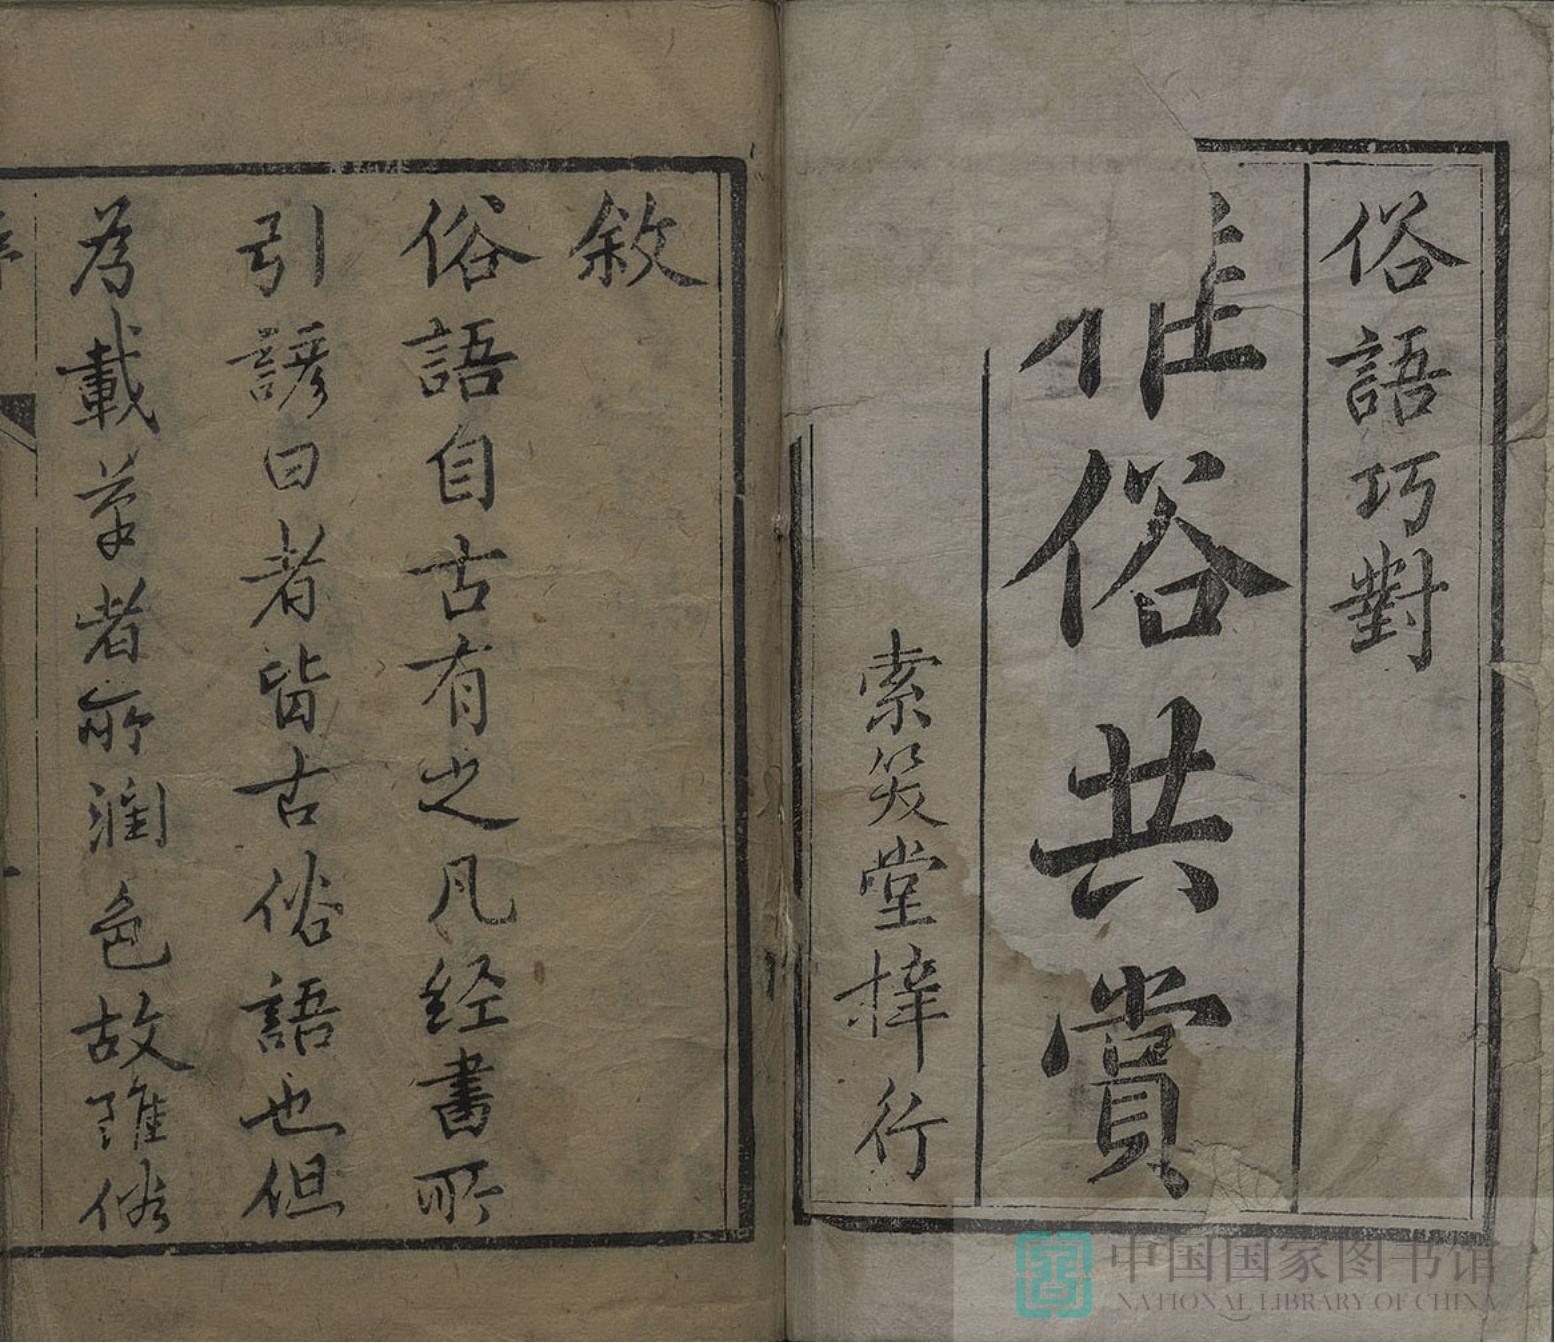 俗語巧對
雅俗共賞
索笑堂梓行
敘
俗語自古有之凡经書所
引諺曰者皆古俗語也但
為載筆者所潤色故雖俗
中国国家图书馆
NATIONAL LIBRARY OF CHINA